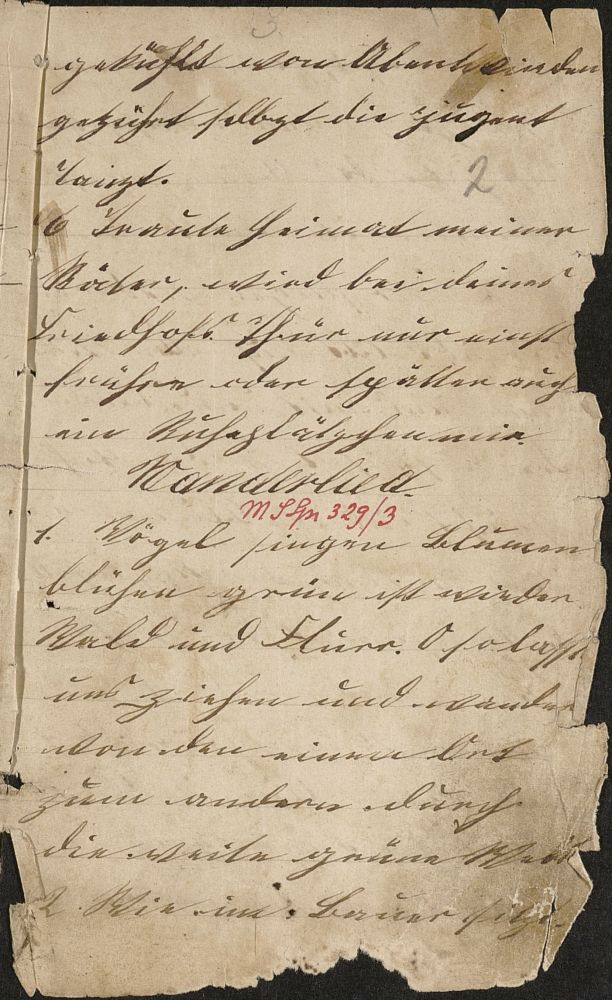 gekühlt von Abentwinden
gezührt selbzt die jugent
tanzt.
2
6 Traute Heimat meiner
Väter, wird bei deines
Friedhofs Thür nur einst
frühre oder spätter auch
ein Ruheplätzchen mir.
Wanderlied.
MSSpr 329/3
1. Vögel singen Blumen
blühen grün ist wieder
Wald und Flurr. O so lasst
uns ziehen und wander
von den einen Ort
zum andern durch
die weite grüne Welt
2 Wie im Bauer sitzt